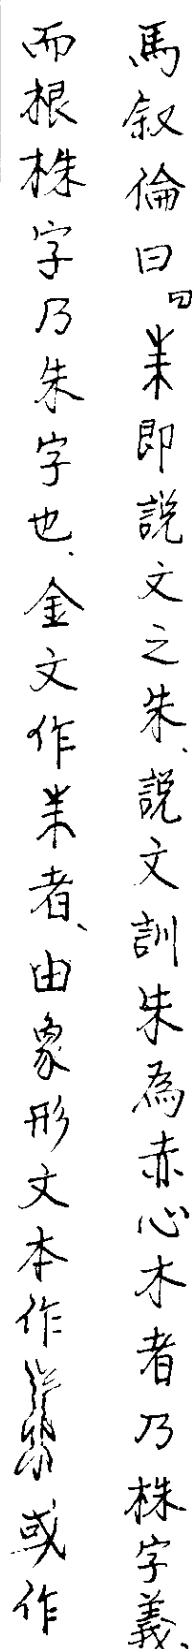 馬叙倫曰。「即說文之朱、說文訓朱為赤心木者乃株字義、
而根株字乃朱字也、金文作者、由象形文本作或作